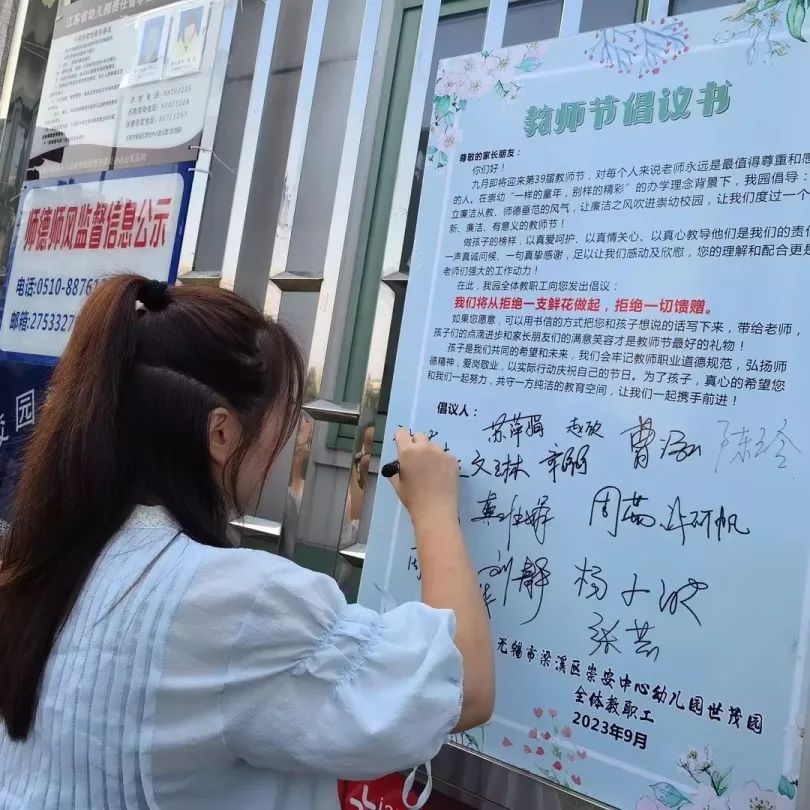 江苏省幼儿园责任督
师德师风监督信息公示
电话:0510-8876
邮箱:275332
园
教师节倡议书
尊敬的家长朋友：
你们好！
九月即将迎来第39届教师节，对每个人来说老师永远是最值得尊重和感
的人。在崇幼“一样的童年，别样的精彩”的办学理念背景下，我园倡导：
立廉洁从教、师德垂范的风气，让廉洁之风吹进崇幼校园，让我们度过一个
新、廉洁、有意义的教师节！
做孩子的榜样，以真爱呵护、以真情关心、以真心教导他们是我们的责任
一声真诚问候、一句真挚感谢，足以让我们感动及欣慰，您的理解和配合更是
老师们强大的工作动力！
在此，我园全体教职工向您发出倡议：
我们将从拒绝一支鲜花做起，拒绝一切馈赠。
如果您愿意，可以用书信的方式把您和孩子想说的话写下来，带给老师，
孩子们的点滴进步和家长朋友们的满意笑容才是教师节最好的礼物！
孩子是我们共同的希望和未来，我们会牢记教师职业道德规范，弘扬师
德精神，爱岗敬业，以实际行动庆祝自己的节日。为了孩子，真心的希望您
和我们一起努力，共守一方纯洁的教育空间，让我们一起携手前进！
倡议人：
苏萍娟 赵欣 曹 陈玲
文琳
周茹 许研帆
刘静 杨小波
张芸
无锡市梁溪区崇安中心幼儿园世茂园
全体教职工
2023年9月